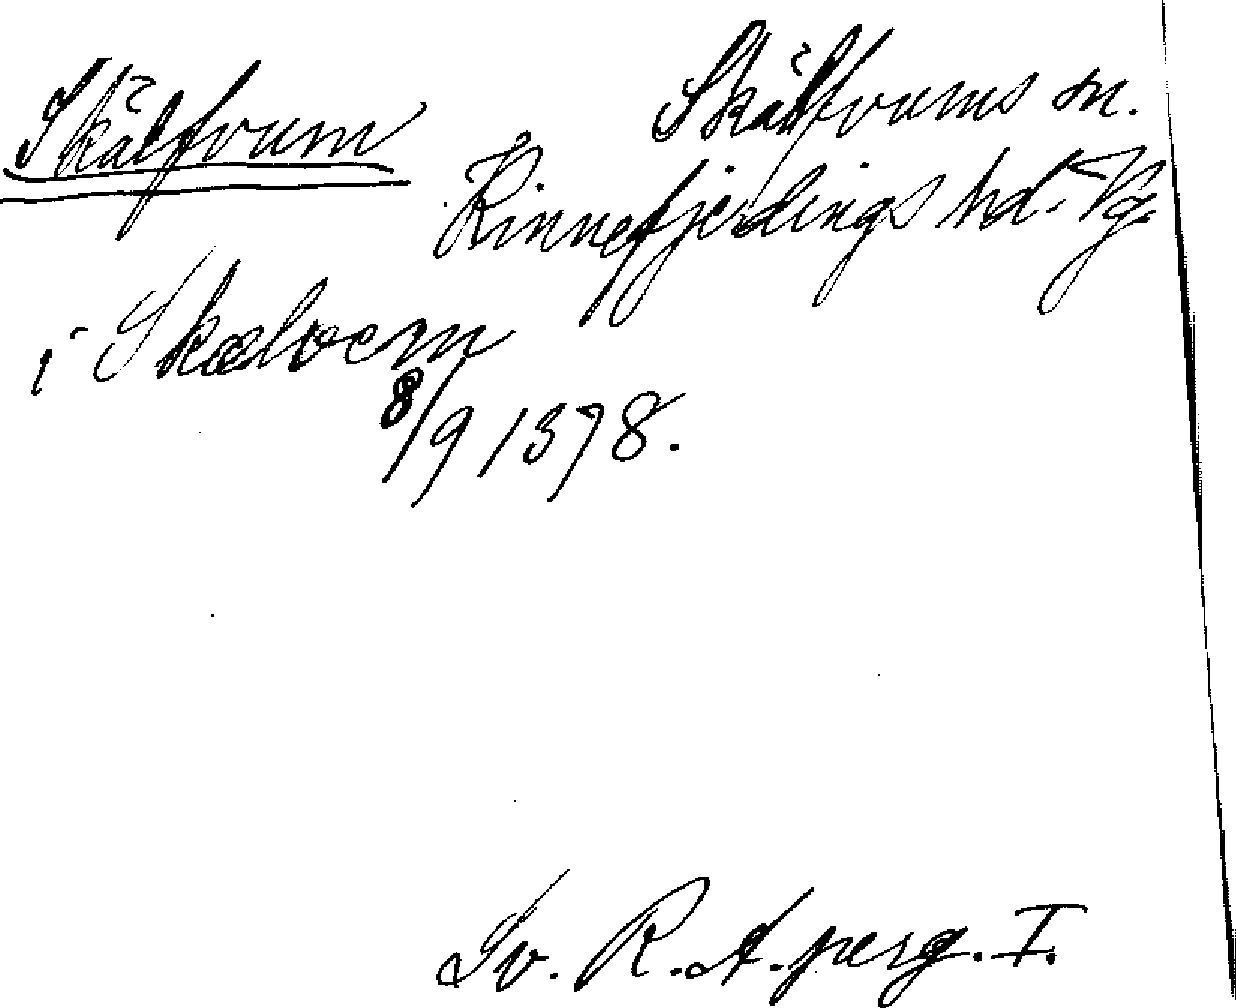 Skälfvum
Skälfvums sn.
Kinnefjerdings hd. Vg.
i Skælvem
8/9 1378.
Sv. R. A. perg. I.